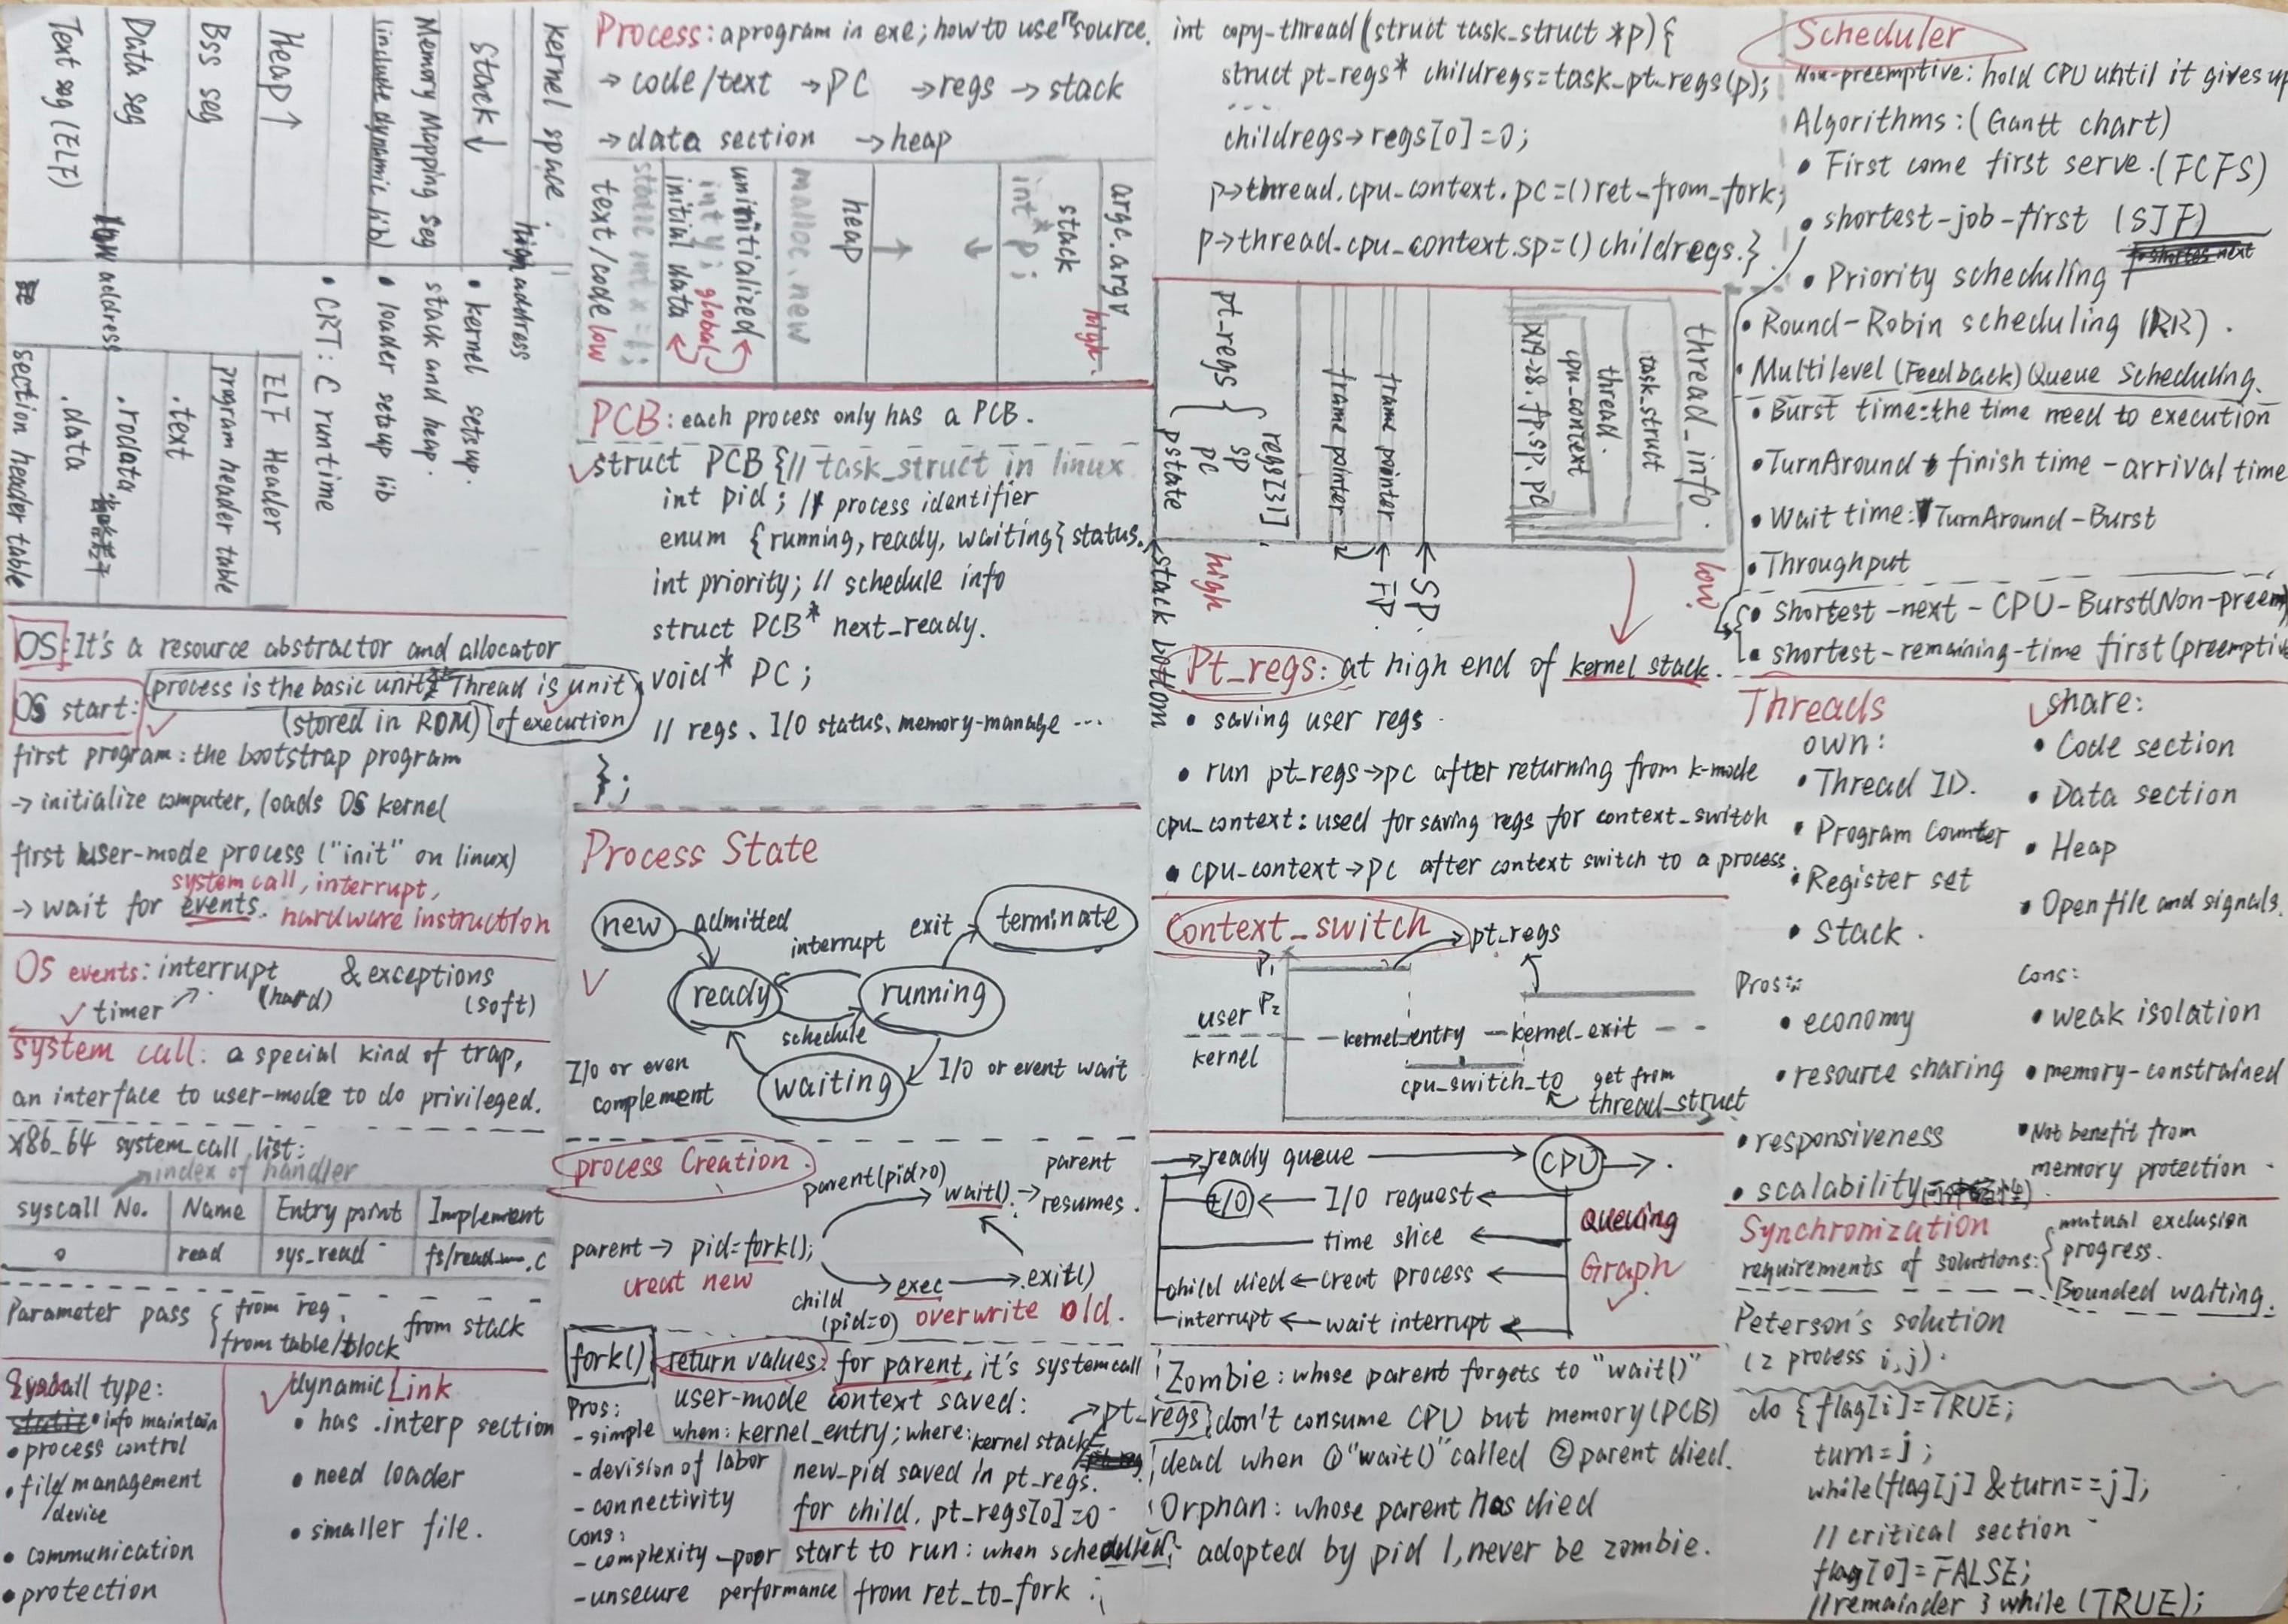 kernel space.
Stack ↓
Memory Mapping Seg
(include dynamic lib)
Heap ↑
Bss seg
Data seg
Text seg (ELF)
high address
low address
• kernel sets up.
stack and heap.
• loader setup lib
• CRT: C runtime
ELF Header
program header table
.text
.rodata
.data
section header table
OS: It's a resource abstractor and allocator
process is the basic unit, Thread is unit
of execution
OS start:
(stored in ROM)
first program: the bootstrap program
→ initialize computer, loads OS kernel
first user-mode process ("init" on linux)
system call, interrupt,
→ wait for events. hardware instruction
OS events: interrupt & exceptions
✓ timer ↗ (hard) (soft)
system call: a special kind of trap,
an interface to user-mode to do privileged.
x86_64 system_call list:
index of handler
syscall No. Name Entry point Implement
0 read sys_read fs/read .c
Parameter pass { from reg. from stack
from table/block
Syscall type:
• info maintain
• process control
• file management
/device
• communication
• protection
✓ dynamic Link
• has .interp section
• need loader
• smaller file.
Process: a program in exe; how to use resource.
→ code/text → PC → regs → stack
→ data section → heap
argc. argv
high.
stack
int* p;
↓
→
heap
malloc. new
uninitialized
int y; global
initial data
static int x=1;
text/code low
PCB: each process only has a PCB.
✓ struct PCB { // task_struct in linux
int pid; // process identifier
enum {running, ready, waiting} status.
int priority; // schedule info
struct PCB* next_ready.
void* PC;
// regs、I/O status、memory-manage ...
};
Process State
new admitted exit terminate
interrupt
✓ ready running
schedule
I/O or even
complement
waiting
I/O or event wait
process Creation.
parent(pid>0) wait(). → parent
resumes.
parent → pid=fork();
creat new
child
(pid=0)
exec → exit()
overwrite old.
fork() return values: for parent, it's system call
user-mode context saved: → pt_regs
when: kernel_entry; where: kernel stack
new_pid saved in pt_regs.
for child, pt_regs[0]=0
start to run: when scheduled;
from ret_to_fork
Pros:
- simple
- devision of labor
- connectivity
Cons:
- complexity - poor
- unsecure performance
int copy_thread(struct task_struct *p){
struct pt_regs* childregs=task_pt_regs(p);
...
childregs→regs[0]=0;
p→thread.cpu_context.pc=()ret_from_fork;
p→thread.cpu_context.sp=()childregs.}
thread_info.
task_struct
thread.
cpu_context
x19-28. fp. sp. pc
frame pointer
frame pointer
pt_regs { regs[31].
sp
pc
pstate
← SP.
← FP.
high
low
stack bottom
Pt_regs: at high end of kernel stack.
• saving user regs
• run pt_regs→pc after returning from k-mode
cpu_context: used for saving regs for context_switch
• cpu_context→pc after context switch to a process.
Context_switch
pt_regs
P1
user P2
kernel
kernel_entry
kernel_exit
cpu_switch_to
get from
thread_struct
ready queue → CPU → .
I/O ← I/O request ←
time slice ←
child died ← creat process ←
interrupt ← wait interrupt ←
Queuing
Graph
✓
Zombie: whose parent forgets to "wait()"
don't consume CPU but memory (PCB)
dead when ①"wait()" called ②parent died.
Orphan: whose parent has died
adopted by pid 1, never be zombie.
Scheduler
Non-preemptive: hold CPU until it gives up
Algorithms: (Gantt chart)
• First come first serve. (FCFS)
• shortest-job-first (SJF)
• Priority scheduling
• Round-Robin scheduling (RR).
• Multilevel (Feedback) Queue Scheduling.
• Burst time: the time need to execution
• TurnAround: finish time - arrival time
• Wait time: TurnAround-Burst
• Throughput
• shortest-next-CPU-Burst(Non-preem
• shortest-remaining-time first(preempti
Threads
own:
• Thread ID.
• Program Counter
• Register set
• stack.
✓ share:
• Code section
• Data section
• Heap
• Open file and signals.
Pros:
• economy
• resource sharing
• responsiveness
• scalability
Cons:
• weak isolation
• memory-constrained
• Not benefit from
memory protection
Synchronization
requirements of solutions: { mutual exclusion
progress.
Bounded waiting.
Peterson's solution
(2 process i, j).
do { flag[i]=TRUE;
turn=j;
while(flag[j] & turn==j];
// critical section
flag[0]=FALSE;
//remainder } while (TRUE);